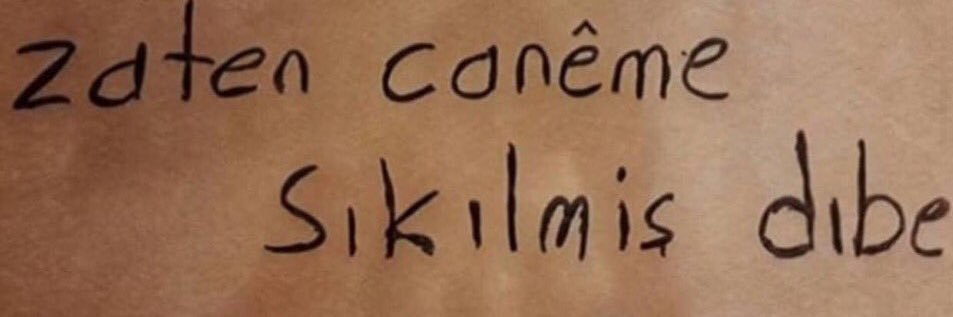 zaten canême
sıkılmiş dıbe